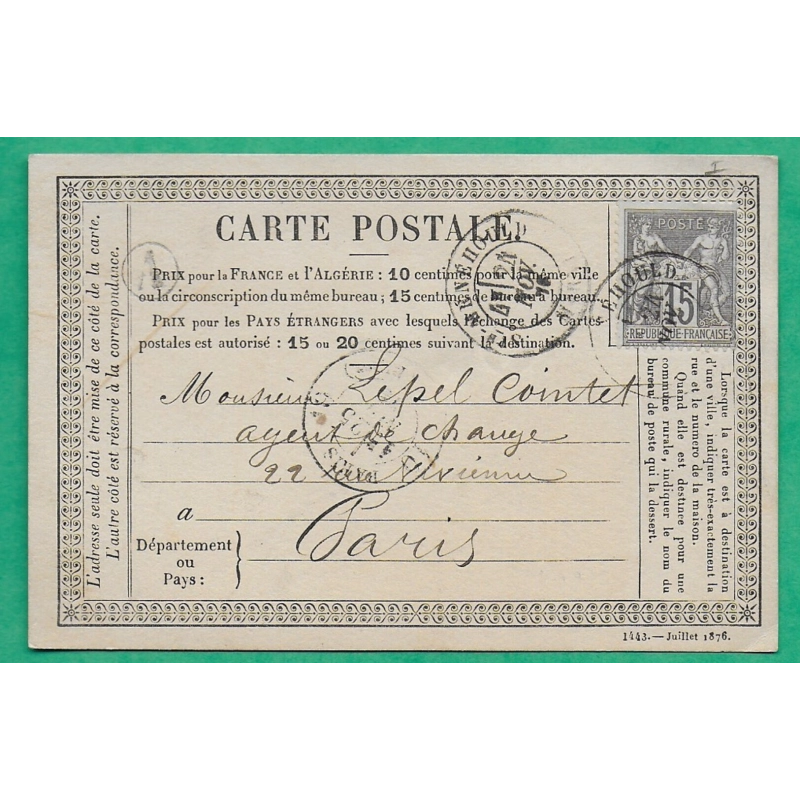 CARTE POSTALE
PRIX pour la FRANCE et l'ALGÉRIE : 10 centimes pour la même ville
ou la circonscription du même bureau ; 15 centimes de bureau à bureau.
PRIX pour les PAYS ÉTRANGERS avec lesquels l'échange des Cartes
postales est autorisé : 15 ou 20 centimes suivant la destination.
L'adresse seule doit être mise de ce côté de la carte.
L'autre côté est réservé à la correspondance.
A
MENÉHOULD
NOV.
POSTE
15
REPUBLIQUE FRANCAISE
ÉHOULD
Monsieur Lepel Cointet
agent de change
22 rue Vivienne
a Paris
Département
ou
Pays :
PARIS
Lorsque la carte est à destination
d'une ville, indiquer très-exactement la
rue et le numéro de la maison.
Quand elle est destinée pour une
commune rurale, indiquer le nom du
bureau de poste qui la dessert.
1443.—Juillet 1876.